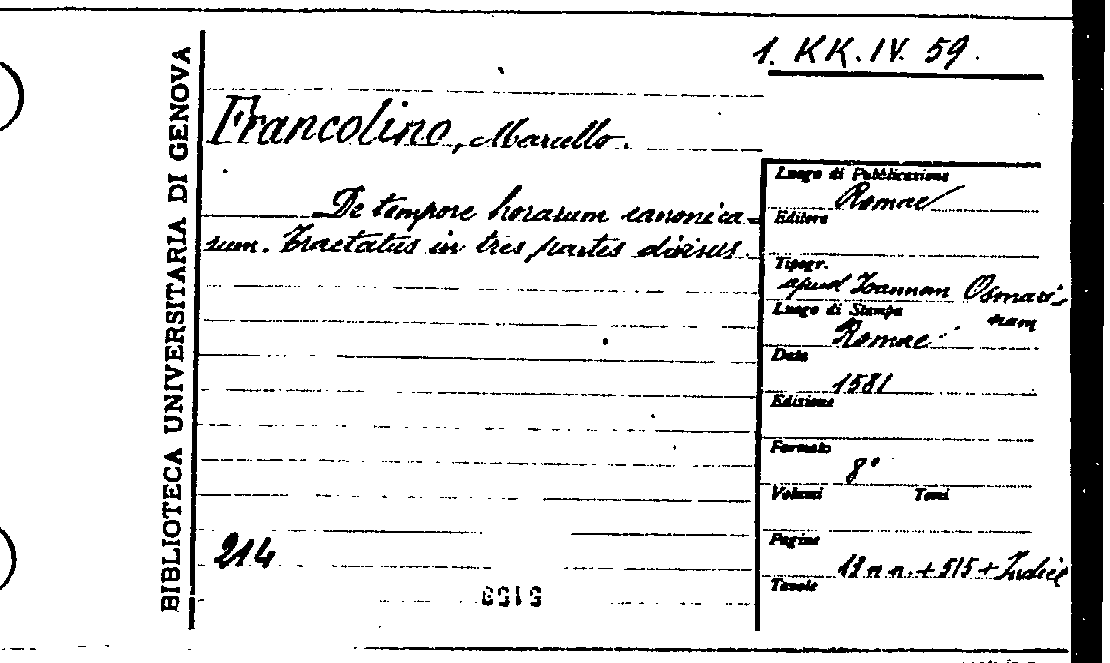 1. KK. IV. 59.
BIBLIOTECA UNIVERSITARIA DI GENOVA
Francolino, Marcello.
De tempore horarum canonica-
rum. Tractatus in tres partes divisus.
Luogo di Pubblicazione
Romae
Editore
Tipogr.
apud Ioannem Osmari-
num
Luogo di Stampa
Romae
Data
1581
Edizione
Formato
8°
Volumi Tomi
Pagine
13 n n. + 515 + Indice
Tavole
214